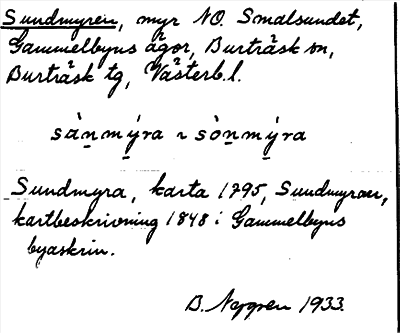 Sundmyren, myr NO. Smalsundet,
Gammelbyns ägor, Burträsk sn,
Burträsk tg, Västerb. l.
sànmýra ~ sònmýra
Sundmyra, karta 1795, Sundmyran,
kartbeskrivning 1848 i Gammelbyns
byaskrin.
B. Nygren 1933.